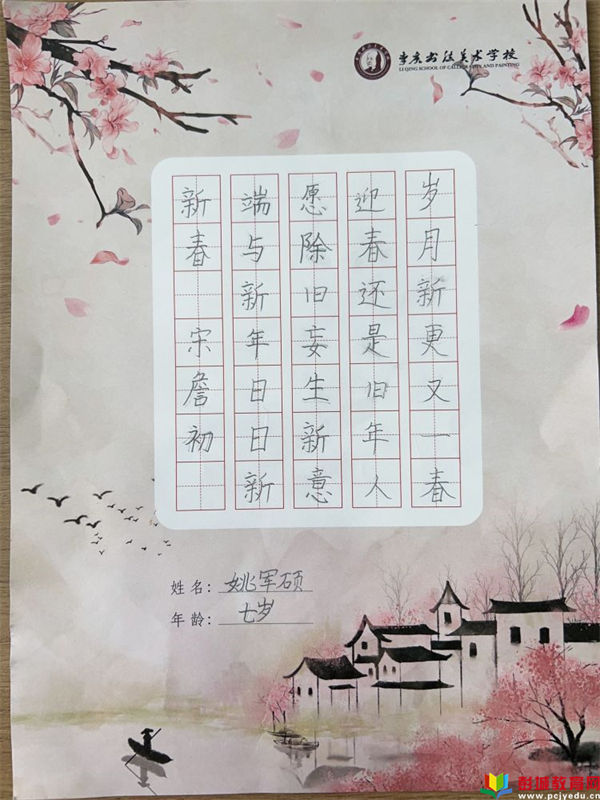 李庆书法美术学校
LI QING SCHOOL OF CALLIGRAPHY AND PAINTING
岁月新更又一春
迎春还是旧年人
愿除旧妄生新意
端与新年日日新
新春 宋詹初
姓名：姚军硕
年龄：七岁
郫城教育网
www.pcjyedu.cn